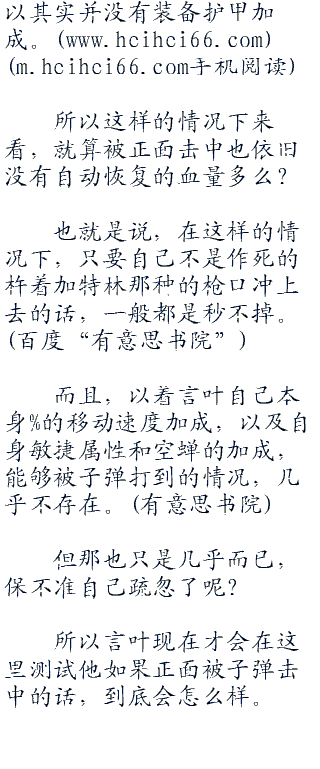 以其实并没有装备护甲加
成。(www.hcihci66.com)
(m.hcihci66.com手机阅读)
所以这样的情况下来
看，就算被正面击中也依旧
没有自动恢复的血量多么？
也就是说，在这样的情
况下，只要自己不是作死的
杵着加特林那种的枪口冲上
去的话，一般都是秒不掉。
(百度“有意思书院”)
而且，以着言叶自己本
身%的移动速度加成，以及自
身敏捷属性和空蝉的加成，
能够被子弹打到的情况，几
乎不存在。(有意思书院)
但那也只是几乎而已，
保不准自己疏忽了呢？
所以言叶现在才会在这
里测试他如果正面被子弹击
中的话，到底会怎么样。